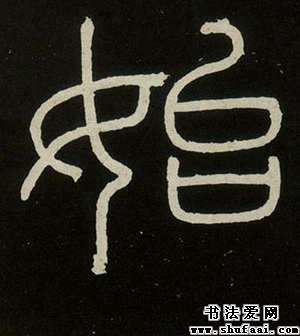 始
书法爱网
www.shufaai.com